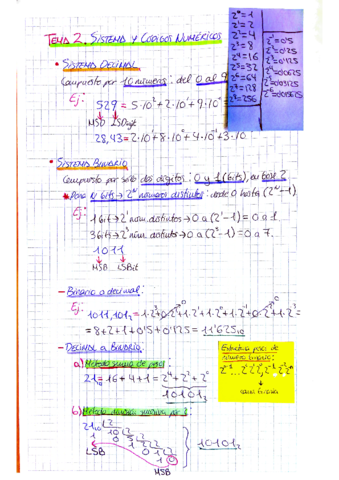 TEMA 2. SISTEMA Y CODIGOS NUMÉRICOS
2⁰=1
2¹=2
2²=4
2³=8
2⁴=16
2⁵=32
2⁶=64
2⁷=128
2⁸=256
2⁻¹=0'5
2⁻²=0'25
2⁻³=0'125
2⁻⁴=0'0625
2⁻⁵=0'03125
2⁻⁶=0'015625
• SISTEMA DECIMAL
Compuesto por 10 números: del 0 al 9
Ej: 529 = 5·10² + 2·10¹ + 9·10⁰
MSD LSDigit
28,43 = 2·10¹ + 8·10⁰ + 4·10⁻¹ + 3·10⁻²
• SISTEMA BINARIO
Compuesto por solo dos dígitos: 0 y 1 (bits), en base 2
Para N bits → 2ᴺ números distintos: desde 0 hasta (2ᴺ-1)
Ej: 1 bit → 2¹ núm. distintos → 0 a (2¹-1) = 0 a 1
3 bits → 2³ núm. distintos → 0 a (2³-1) = 0 a 7.
1011
MSB LSBit
– Binario a decimal:
Ej: 1011,101₂ = 1·2³ + 0·2² + 1·2¹ + 1·2⁰ + 1·2⁻¹ + 0·2⁻² + 1·2⁻³ =
= 8+2+1+0'5+0'125 = 11'625₁₀
– DECIMAL A BINARIO
a) Método suma de pesos
21₁₀ = 16+4+1 = 2⁴+2²+2⁰
10101₂
Estructura pesos de
números binarios:
b) Método división sucesiva por 2
21₁₀ 2
1 10 2
0 5 2
1 2 2
0 1 2
1 0
LSB
MSB
10101₂